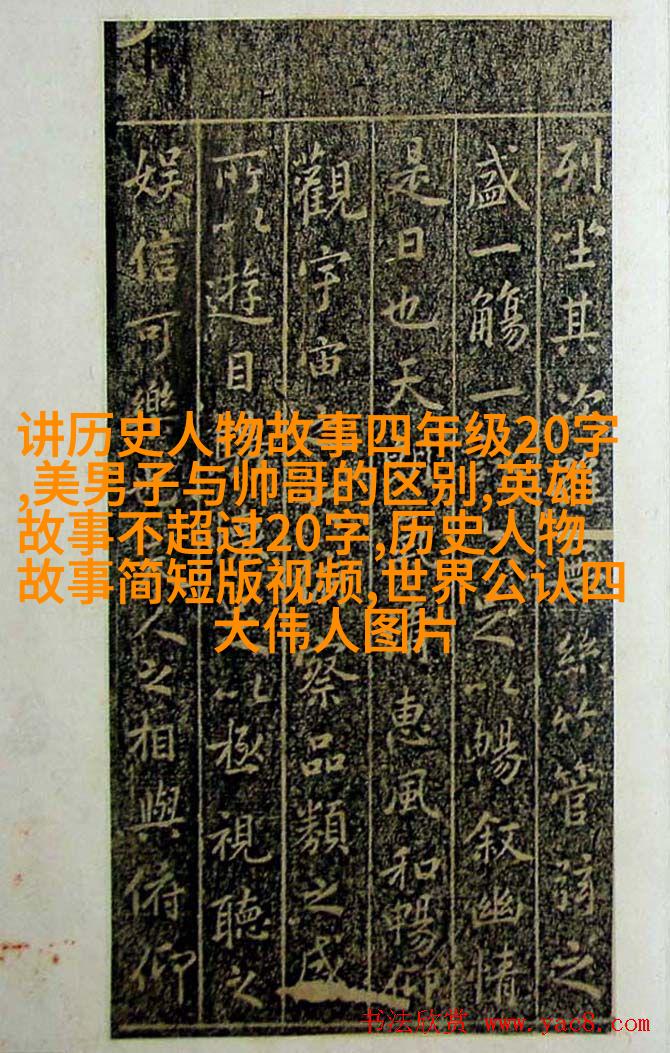 列坐其絲竹管絃之
盛一觴一之以暢叙幽情
是日也天惠風和暢仰
觀宇宙察品類之盛
所以遊目以極視聽之
娱信可樂人之相與俯仰
讲历史人物故事四年级20字
,美男子与帅哥的区别,英雄
故事不超过20字,历史人物
故事简短版视频,世界公认四
大伟人图片
书法欣赏 www.yac8.com